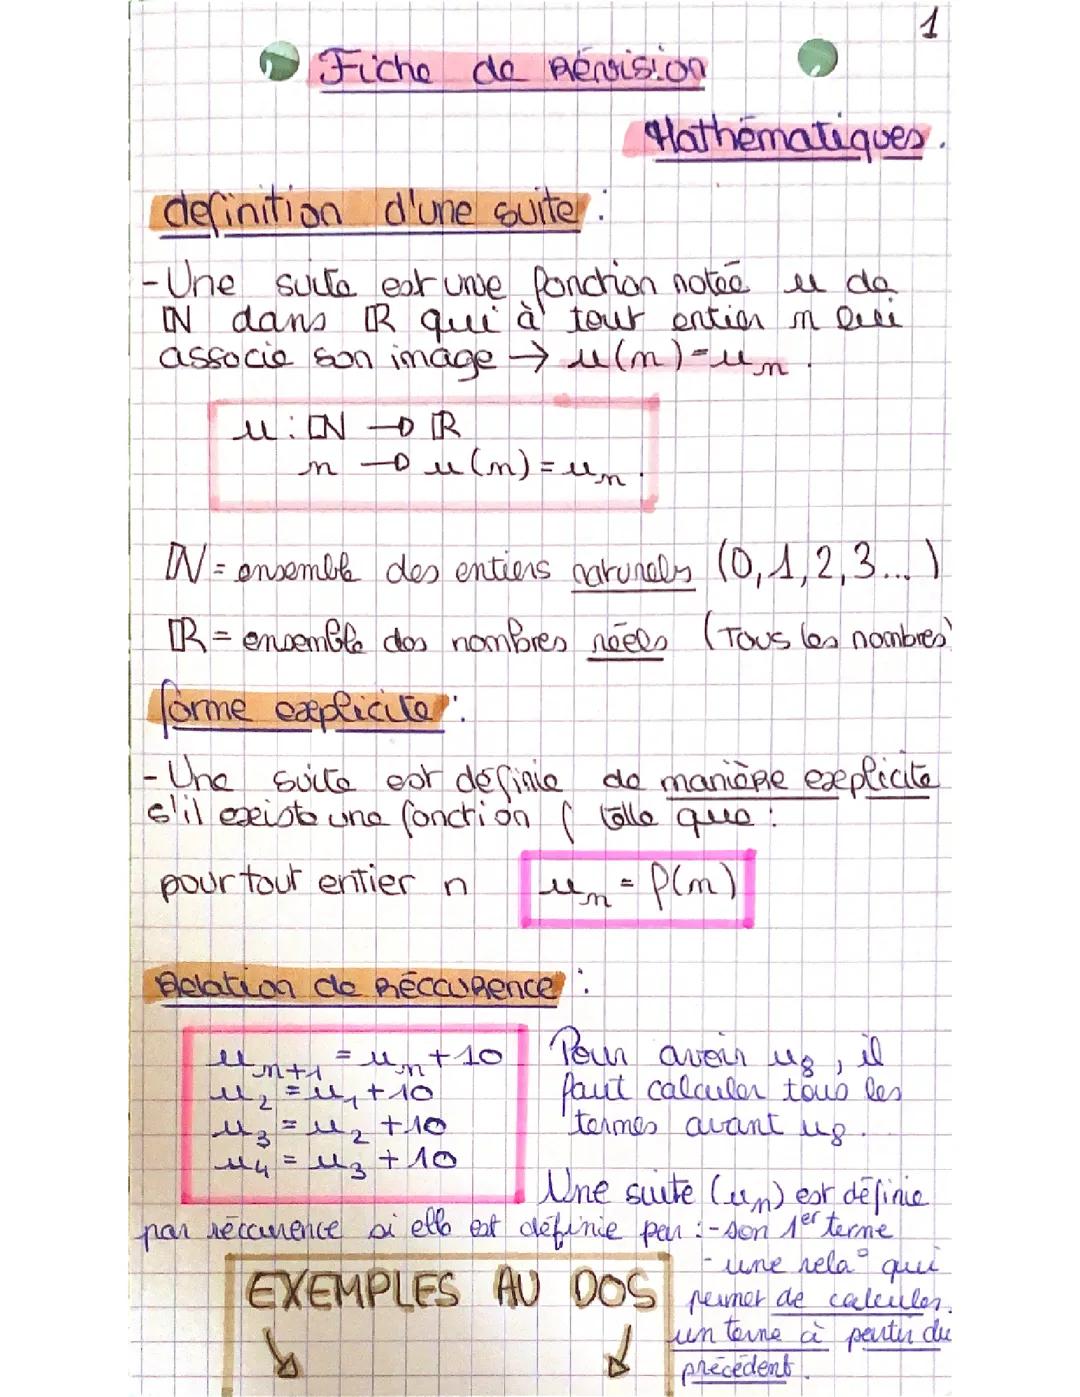 1
Fiche de Révision
Mathématiques.
definition d'une suite :
- Une suite est une fonction notée u de
ℕ dans ℝ qui à tout entier n lui
associe son image → u(n)=uₙ.
u : ℕ → ℝ
n → u(n) = uₙ.
ℕ = ensemble des entiers naturels (0,1,2,3...)
ℝ = ensemble des nombres réels (Tous les nombres)
forme explicite :
- Une suite est définie de manière explicite
s'il existe une fonction f telle que :
pour tout entier n uₙ = f(n)
Relation de Réccurence :
uₙ₊₁ = uₙ + 10
u₂ = u₁ + 10
u₃ = u₂ + 10
u₄ = u₃ + 10
Pour avoir u₈, il
faut calculer tous les
termes avant u₈.
Une suite (uₙ) est définie
par réccurence si elle est définie par : - son 1er terme
- une rela° qui
permet de calculer
un terme à partir du
précédent.
EXEMPLES AU DOS